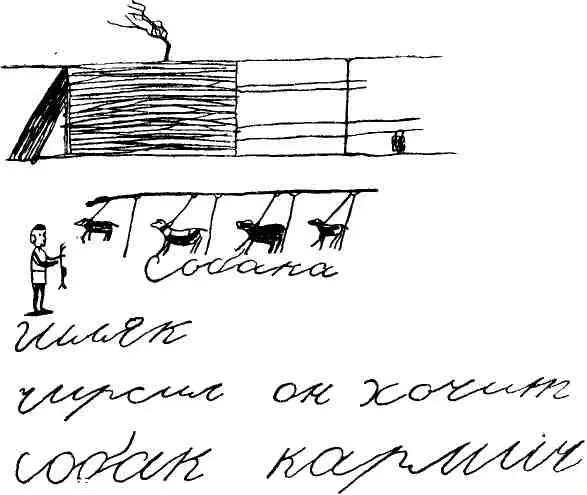 Собака
гиляк
чирсил он хочит
собак кармич